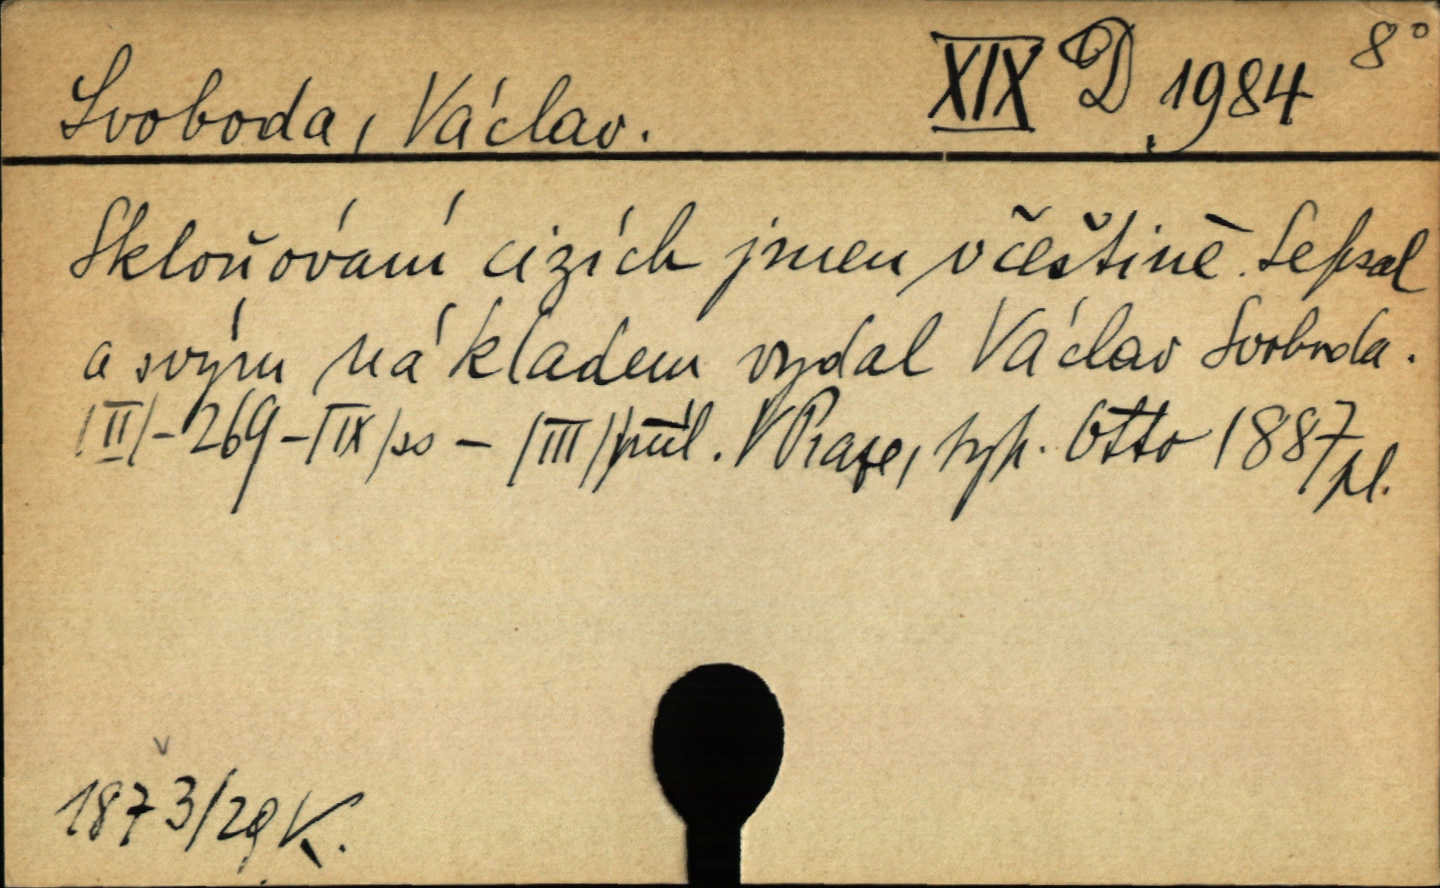 Svoboda, Václav.
XIX D 1984 8°
Skloňování cizích jmen v češtině. Sepsal
a svým nákladem vydal Václav Svoboda.
/II/-269-/IX/ss - /III/ příl. V Praze, typ. Otto 1887
pl.
1873/29 K.